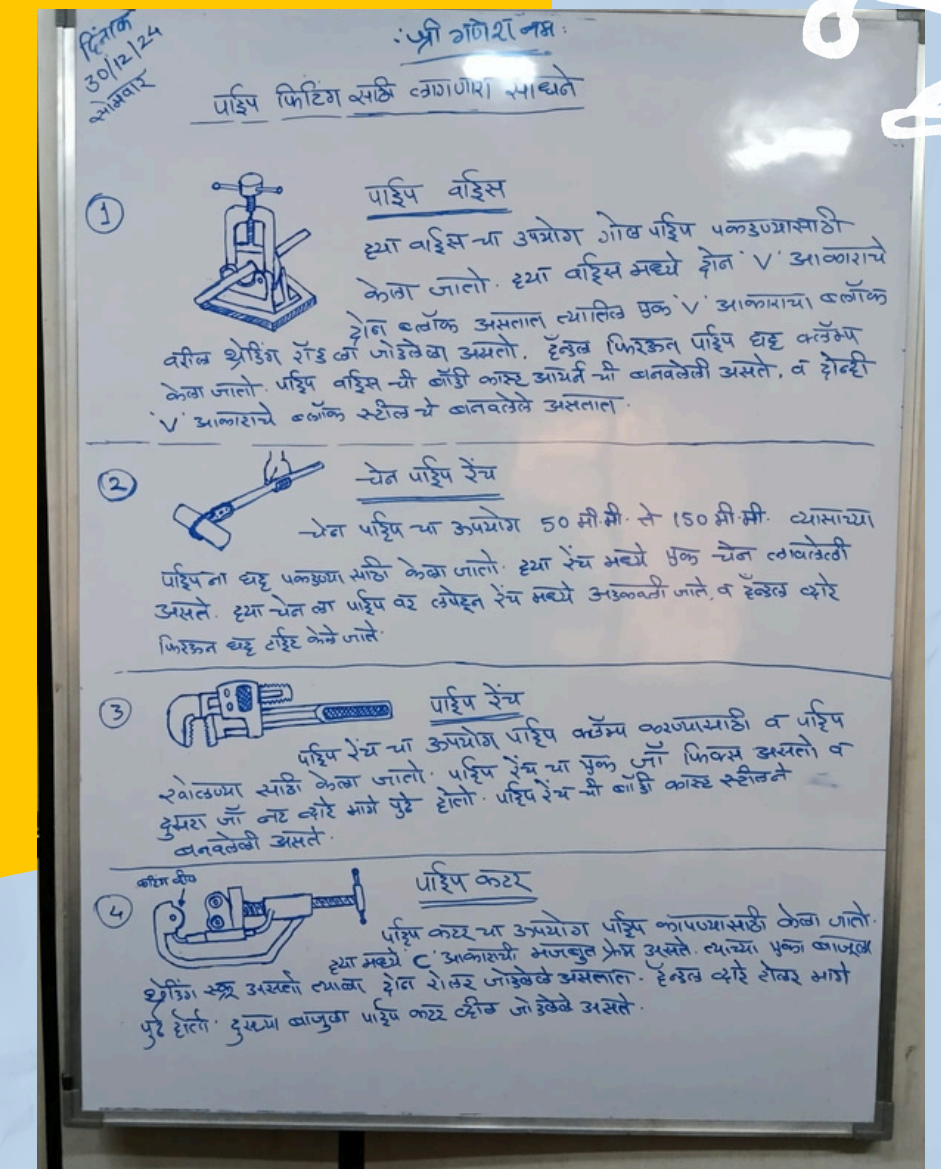 दिनांक
30/12/24
सोमवार
श्री गणेश नमः
पाईप फिटिंग साठी लागणारी साधने
1
पाईप वाईस
ह्या वाईस चा उपयोग गोल पाईप पकडण्यासाठी
केला जातो. ह्या वाईस मध्ये दोन 'V' आकाराचे
दोन ब्लॉक असतात त्यातिल एक 'V' आकाराचा ब्लॉक
वरील थ्रेडिंग रॉड ला जोडलेला असतो. हॅन्डल फिरऊन पाईप घट्ट क्लॅम्प
केला जातो. पाईप वाईस ची बॉडी कास्ट आयर्न ची बनवलेली असते. व दोन्ही
'V' आकाराचे ब्लॉक स्टील चे बनवलेले असतात.
2
चेन पाईप रेंच
चेन पाईप चा ऊपयोग 50 मी.मी. ते 150 मी.मी. व्यासाच्या
पाईप ना घट्ट पकडण्या साठी केला जातो. ह्या रेंच मध्ये एक चेन लावलेली
असते. ह्या चेन ला पाईप वर लपेटून रेंच मध्ये अडकवली जाते, व हॅन्डल व्दारे
फिरऊन घट्ट टाईट केले जाते.
3
पाईप रेंच
पाईप रेंच चा ऊपयोग पाईप क्लॅम्प करण्यासाठी व पाईप
खोलण्या साठी केला जातो. पाईप रेंच चा एक जॉ फिक्स असतो व
दुसरा जॉ नट व्दारे मागे पुढे होतो. पाईप रेंच ची बॉडी कास्ट स्टीलने
बनवलेली असते.
4
कटिंग व्हील
पाईप कटर
पाईप कटर चा उपयोग पाईप कापण्यासाठी केला जातो.
ह्या मध्ये 'C' आकाराची मजबुत फ्रेम असते. त्याच्या एका बाजूला
थ्रेडिंग स्क्रू असतो त्याला दोन रोलर जोडलेले असतात. हॅन्डल व्दारे रोलर मागे
पुढे होतो. दुसऱ्या बाजुला पाईप कटर व्हील जोडलेले असते.